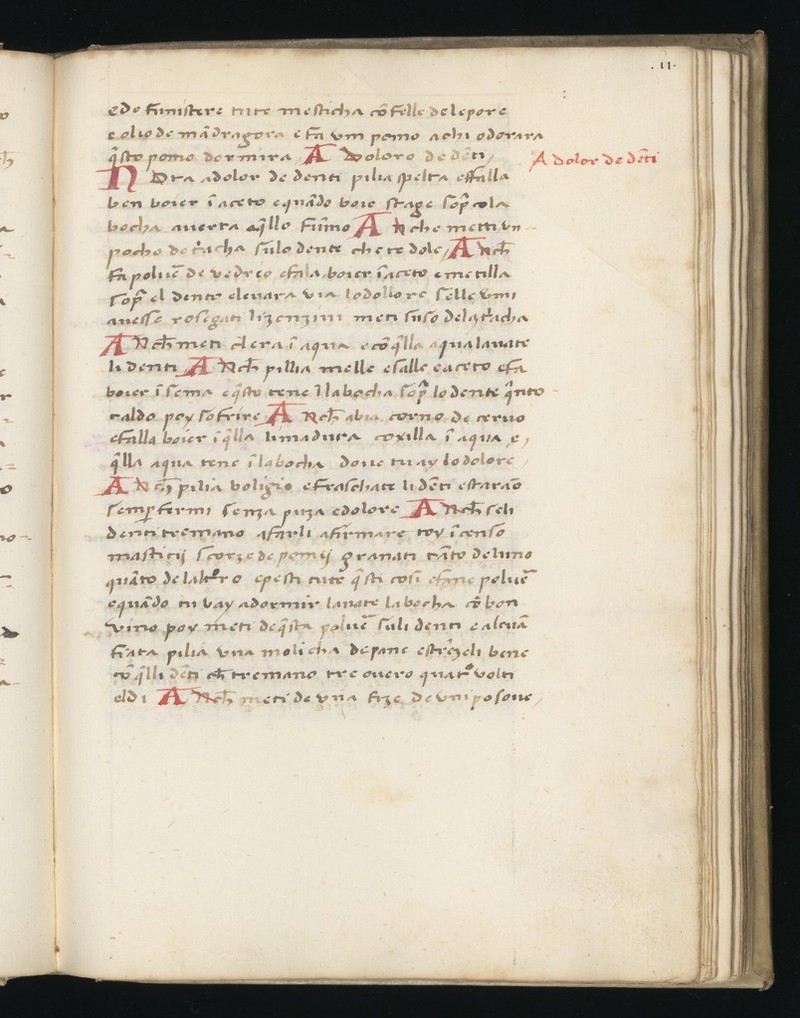 .11.
e de funistere tute mesticha cõ felle de lepore
e olio de mãdragora e fa vm pomo a chi odorara
q̃sto pomo dormira A Doloro de dẽti
A dolor de dẽti
NOta a dolor de denti pilia spelta e falla
ben boier ĩ aceto e quãdo boie stage sop̃ cola
bocha averta a q̃llo fumo Anche metti vn
pocho de t̃acha sulo dente che te dole, Anch̃
fa poluẽ de vedreo e fala boier ĩ aceto e metilla
sop̃ el dente e levara via lo dollore selle vmi
avesse rosegati li zenzini meti suso de la t̃iacha
Anch̃ meti clera ĩ aqua e cõ q̃lla aqua lavate
li denti Anch̃ pillia melle e salle e aceto e fa
boier ĩ sema e q̃sto tene ĩ la bocha sop̃ lo dente q̃nto
caldo poy sofrire Anch̃ abia corno de cervo
e falla boier ĩ q̃lla limadura coxilla ĩ aqua e,
q̃lla aqua tene ĩ la bocha dove tu ay lo dolore
Anch̃ pilia poligio e fraschate li dẽti e starão
semp̃ fermi senza puza e dolore Anch̃ se li
denti tremano a farli afirmare toy ĩcenso
masticij scorze de pomij granati tãto de luno
quãto de laltro e pesti tute q̃sti cosi e fane poluẽ
e quãdo tu vay a dormir lavate la bocha cõ bon
vino poy meti de q̃sta poluẽ su li denti e alcuã
fiata pilia vna molicha de pane e strẽzeli bene
cõ q̃lli dẽti ch̃ tremano tre overo quatro volti
el di Anch̃ meti de vna fize de vm posove,